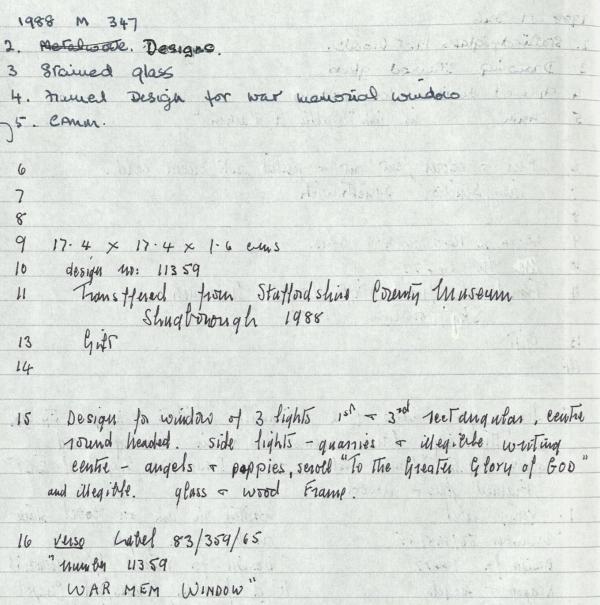 1988 M 347
2. Metalwork. Designs.
3 Stained glass
4. Framed Design for war memorial window
5. CAMM.
6
7
8
9 17.4 x 17.4 x 1.6 cms
10 design no: 11359
11 Transferred from Staffordshire County Museum
Shugborough 1988
13 Gift
14
15 Design for window of 3 lights 1st + 3rd rectangular, centre
round headed. side lights - quarries + illegible writing
centre - angels + poppies, scroll "To the Greater Glory of GOD"
and illegible. glass + wood Frame.
16 verso Label 83/359/65
"number 11359
WAR MEM WINDOW"